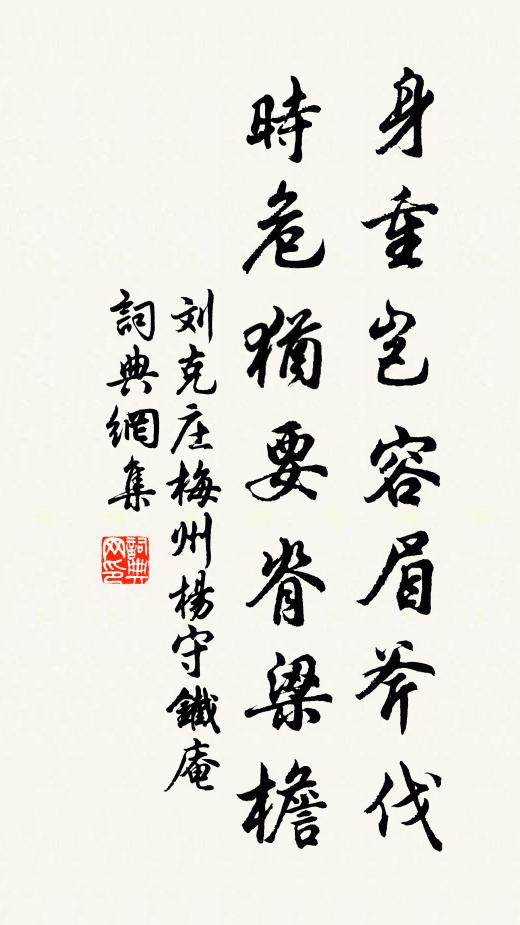 身重岂容眉斧伐
時危猶要脊梁檐
刘克庄梅州楊守鐵庵
詞典網集
詞典網印